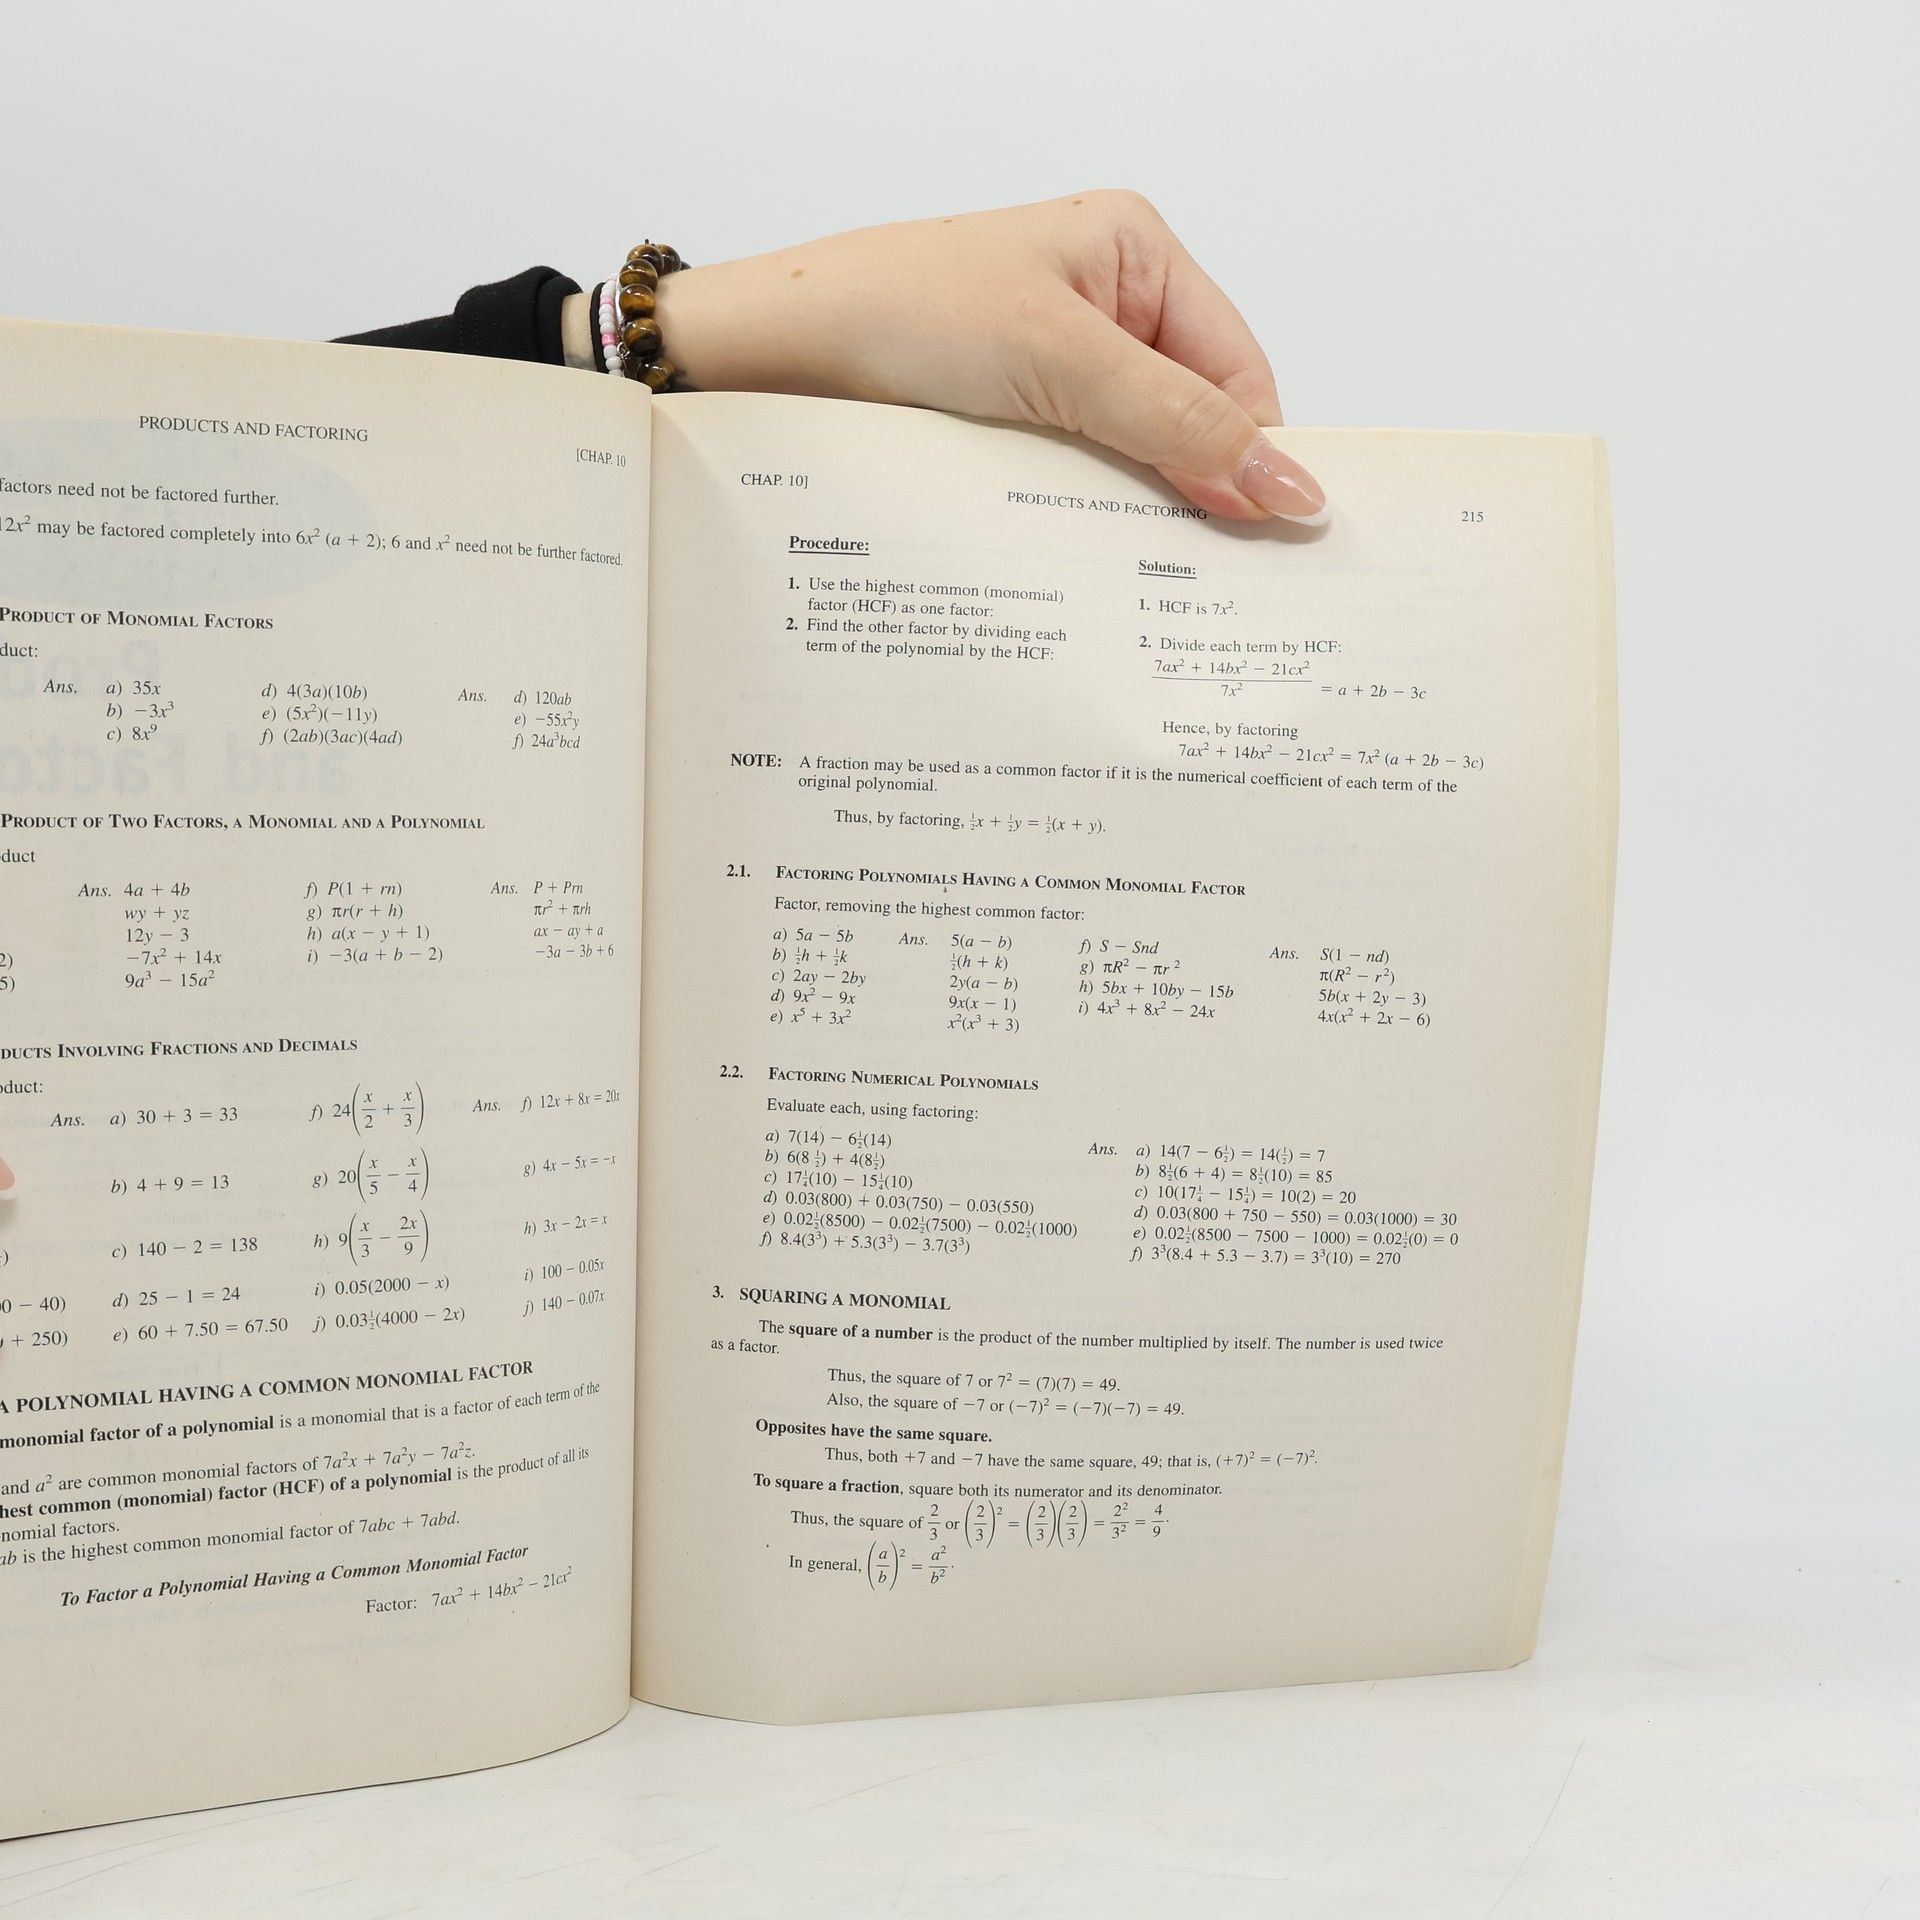 PRODUCTS AND FACTORING
[CHAP. 10
factors need not be factored further.
12x² may be factored completely into 6x² (a + 2); 6 and x² need not be further factored.
PRODUCT OF MONOMIAL FACTORS
duct:
Ans. a) 35x d) 4(3a)(10b) Ans. d) 120ab
b) −3x³ e) (5x²)(−11y) e) −55x²y
c) 8x⁹ f) (2ab)(3ac)(4ad) f) 24a³bcd
PRODUCT OF TWO FACTORS, A MONOMIAL AND A POLYNOMIAL
duct
Ans. 4a + 4b f) P(1 + rn) Ans. P + Prn
wy + yz g) πr(r + h) πr² + πrh
12y − 3 h) a(x − y + 1) ax − ay + a
2) −7x² + 14x i) −3(a + b − 2) −3a − 3b + 6
5) 9a³ − 15a²
DUCTS INVOLVING FRACTIONS AND DECIMALS
oduct:
Ans. a) 30 + 3 = 33 f) 24(x/2 + x/3) Ans. f) 12x + 8x = 20x
b) 4 + 9 = 13 g) 20(x/5 − x/4) g) 4x − 5x = −x
c) 140 − 2 = 138 h) 9(x/3 − 2x/9) h) 3x − 2x = x
0 − 40) d) 25 − 1 = 24 i) 0.05(2000 − x) i) 100 − 0.05x
+ 250) e) 60 + 7.50 = 67.50 j) 0.03½(4000 − 2x) j) 140 − 0.07x
A POLYNOMIAL HAVING A COMMON MONOMIAL FACTOR
monomial factor of a polynomial is a monomial that is a factor of each term of the
and a² are common monomial factors of 7a²x + 7a²y − 7a²z.
hest common (monomial) factor (HCF) of a polynomial is the product of all its
nomial factors.
ab is the highest common monomial factor of 7abc + 7abd.
To Factor a Polynomial Having a Common Monomial Factor
Factor: 7ax² + 14bx² − 21cx²
CHAP. 10]
PRODUCTS AND FACTORING
215
Procedure:
1. Use the highest common (monomial)
factor (HCF) as one factor:
2. Find the other factor by dividing each
term of the polynomial by the HCF:
Solution:
1. HCF is 7x².
2. Divide each term by HCF:
7ax² + 14bx² − 21cx²
7x² = a + 2b − 3c
Hence, by factoring
7ax² + 14bx² − 21cx² = 7x² (a + 2b − 3c)
NOTE: A fraction may be used as a common factor if it is the numerical coefficient of each term of the
original polynomial.
Thus, by factoring, ½x + ½y = ½(x + y).
2.1. FACTORING POLYNOMIALS HAVING A COMMON MONOMIAL FACTOR
Factor, removing the highest common factor:
a) 5a − 5b Ans. 5(a − b) f) S − Snd Ans. S(1 − nd)
b) ½h + ½k ½(h + k) g) πR² − πr² π(R² − r²)
c) 2ay − 2by 2y(a − b) h) 5bx + 10by − 15b 5b(x + 2y − 3)
d) 9x² − 9x 9x(x − 1) i) 4x³ + 8x² − 24x 4x(x² + 2x − 6)
e) x⁵ + 3x² x²(x³ + 3)
2.2. FACTORING NUMERICAL POLYNOMIALS
Evaluate each, using factoring:
a) 7(14) − 6½(14) Ans. a) 14(7 − 6½) = 14(½) = 7
b) 6(8½) + 4(8½) b) 8½(6 + 4) = 8½(10) = 85
c) 17¼(10) − 15¼(10) c) 10(17¼ − 15¼) = 10(2) = 20
d) 0.03(800) + 0.03(750) − 0.03(550) d) 0.03(800 + 750 − 550) = 0.03(1000) = 30
e) 0.02½(8500) − 0.02½(7500) − 0.02½(1000) e) 0.02½(8500 − 7500 − 1000) = 0.02½(0) = 0
f) 8.4(3³) + 5.3(3³) − 3.7(3³) f) 3³(8.4 + 5.3 − 3.7) = 3³(10) = 270
3. SQUARING A MONOMIAL
The square of a number is the product of the number multiplied by itself. The number is used twice
as a factor.
Thus, the square of 7 or 7² = (7)(7) = 49.
Also, the square of −7 or (−7)² = (−7)(−7) = 49.
Opposites have the same square.
Thus, both +7 and −7 have the same square, 49; that is, (+7)² = (−7)².
To square a fraction, square both its numerator and its denominator.
Thus, the square of 2/3 or (2/3)² = (2/3)(2/3) = 2²/3² = 4/9.
In general, (a/b)² = a²/b².